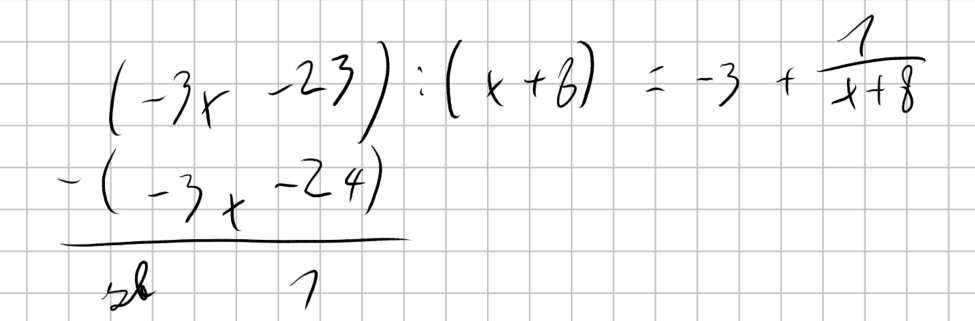 (-3x -23) : (x+8) = -3 + 1/(x+8)
-(-3x -24)
1